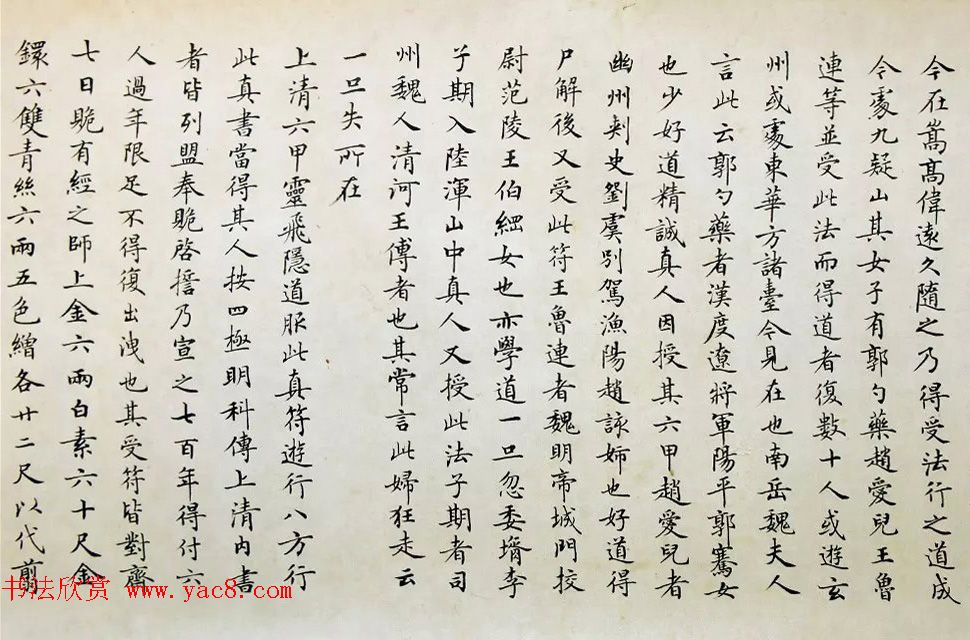 今在嵩高偉遠久隨之乃得受法行之道成
今處九疑山其女子有郭勺藥趙愛兒王魯
連等並受此法而得道者復數十人或遊玄
州或處東華方諸臺今見在也南岳魏夫人
言此云郭勺藥者漢度遼將軍陽平郭騫女
也少好道精誠真人因授其六甲趙愛兒者
幽州刺史劉虞別駕漁陽趙該姉也好道得
尸解後又受此符王魯連者魏明帝城門挍
尉范陵王伯綱女也亦學道一旦忽委壻李
子期入陸渾山中真人又授此法子期者司
州魏人清河王傅者也其常言此婦狂走云
一旦失所在
上清六甲靈飛隱道服此真符遊行八方行
此真書當得其人按四極明科傳上清內書
者皆列盟奉贶啓擔乃宣之七百年得付六
人過年限足不得復出洩也其受符皆對齋
七日贶有經之師上金六兩白素六十尺金
鐶六雙青絲六兩五色繒各廿二尺以代翦
书法欣赏 www.yac8.com